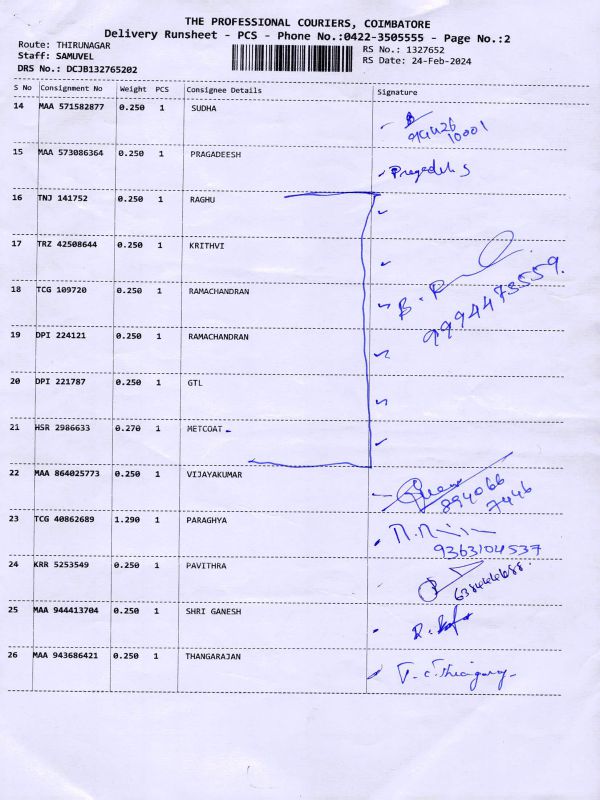 THE PROFESSIONAL COURIERS, COIMBATORE
Delivery Runsheet - PCS - Phone No.:0422-3505555 - Page No.:2
Route: THIRUNAGAR RS No.: 1327652
Staff: SAMUVEL RS Date: 24-Feb-2024
DRS No.: DCJB132765202
S No Consignment No Weight PCS Consignee Details Signature
14 MAA 571582877 0.250 1 SUDHA
10001
15 MAA 573086364 0.250 1 PRAGADEESH
16 TNJ 141752 0.250 1 RAGHU
17 TRZ 42508644 0.250 1 KRITHVI
18 TCG 109720 0.250 1 RAMACHANDRAN
9994473559.
19 DPI 224121 0.250 1 RAMACHANDRAN
20 DPI 221787 0.250 1 GTL
21 HSR 2986633 0.270 1 METCOAT
22 MAA 864025773 0.250 1 VIJAYAKUMAR
894066
7446
23 TCG 40862689 1.290 1 PARAGHYA
9363104537
24 KRR 5253549 0.250 1 PAVITHRA
25 MAA 944413704 0.250 1 SHRI GANESH
26 MAA 943686421 0.250 1 THANGARAJAN